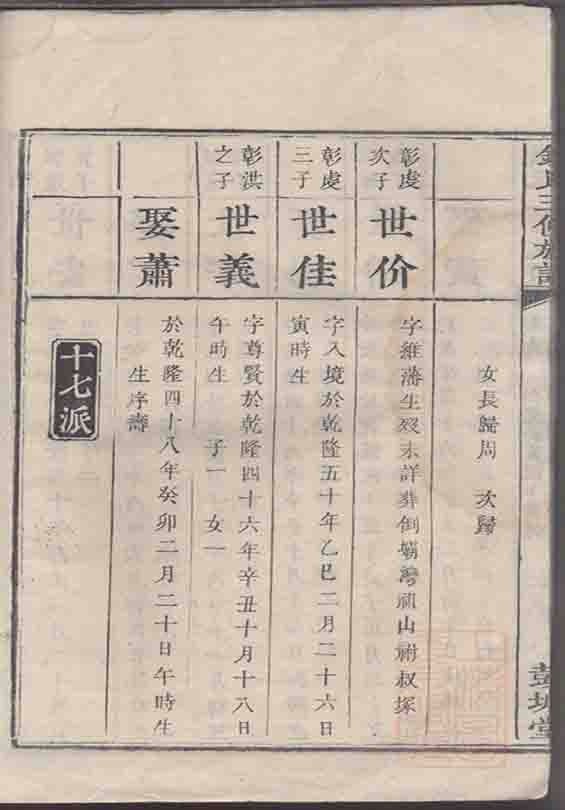 女長歸周 次歸
彰虔次子
世价
字維藩生歿未詳葬倒壩灣祖山祔叔塚
彰虔三子
世佳
字入境於乾隆五十年乙巳二月二十六日
寅時生
彰洪之子
世義
字尊賢於乾隆四十六年辛丑十月十八日
午時生 子一 女一
娶蕭
於乾隆四十八年癸卯二月二十日午時生
生序壽
十七派